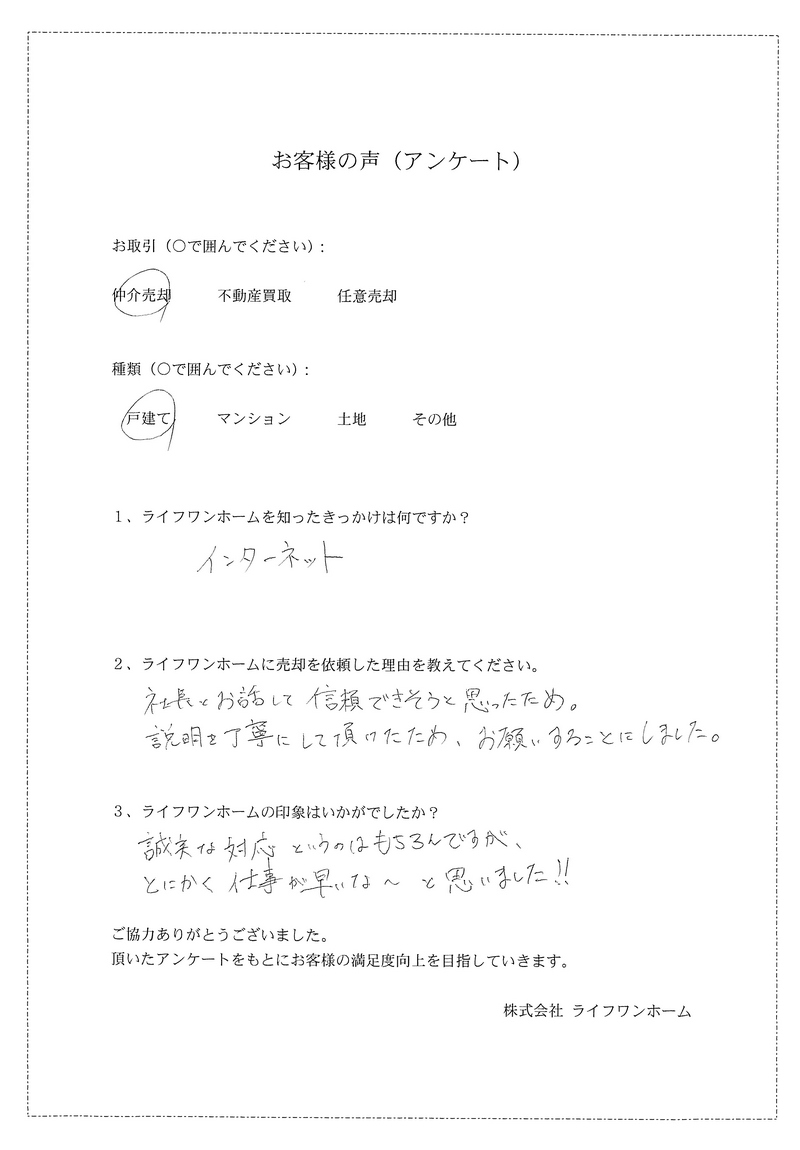 お客様の声（アンケート）
お取引（○で囲んでください）:
仲介売却　不動産買取　任意売却
種類（○で囲んでください）:
戸建て　マンション　土地　その他
１、ライフワンホームを知ったきっかけは何ですか？
インターネット
２、ライフワンホームに売却を依頼した理由を教えてください。
社長とお話して信頼できそうと思ったため。
説明を丁寧にして頂けたため、お願いすることにしました。
３、ライフワンホームの印象はいかがでしたか？
誠実な対応というのはもちろんですが、
とにかく仕事が早いな～と思いました!!
ご協力ありがとうございました。
頂いたアンケートをもとにお客様の満足度向上を目指していきます。
株式会社 ライフワンホーム